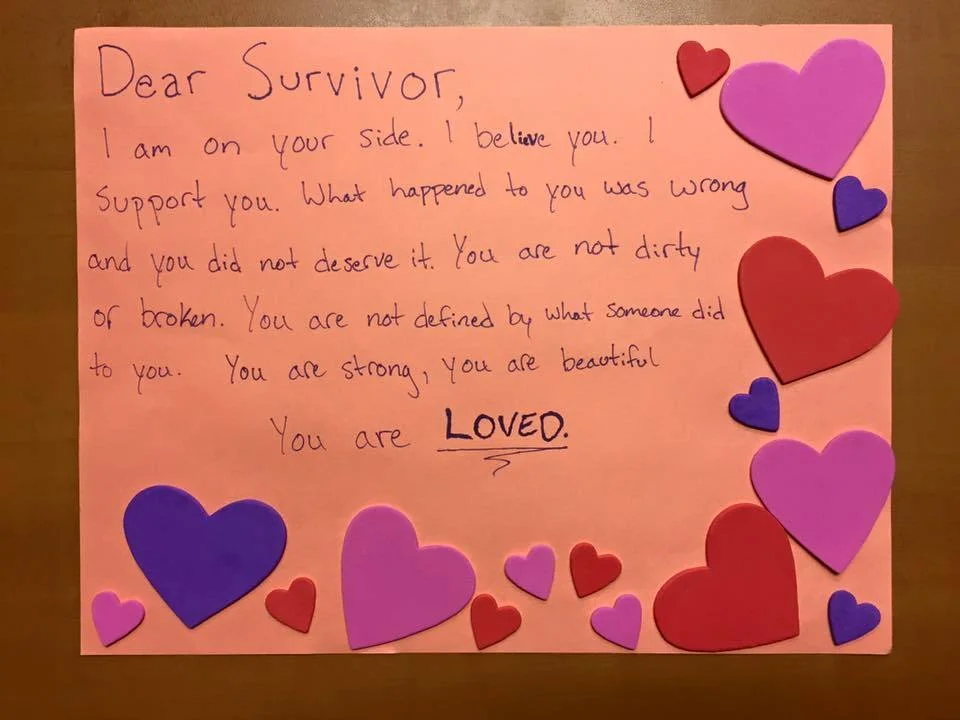 Dear Survivor,
I am on your side. I believe you. I
support you. What happened to you was wrong
and you did not deserve it. You are not dirty
or broken. You are not defined by what someone did
to you. You are strong, you are beautiful
You are LOVED.